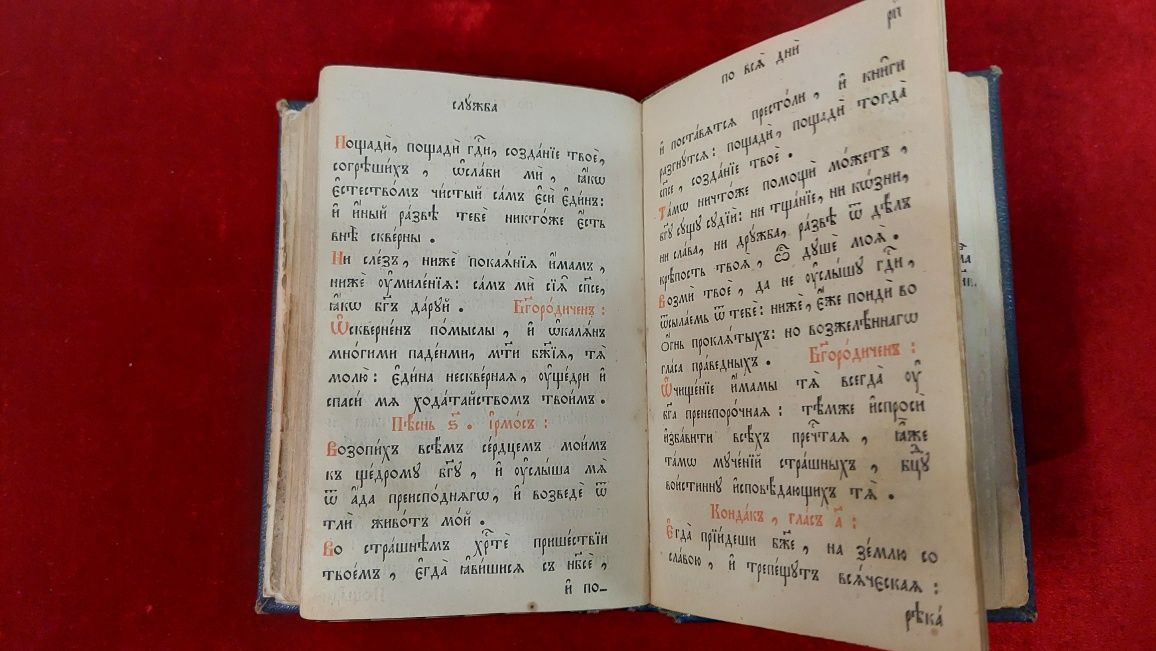 слꙋ́жба
Пощадѝ, пощадѝ гдⷭ҇и, созда́нїе твоѐ,
согрѣ́шихъ, ѡ҆сла́би мѝ, ꙗ҆́кѡ
є҆стество́мъ чи́стый са́мъ є҆сѝ є҆ди́нъ:
и҆ и҆́ный ра́звѣ тебѐ никто́же є҆́сть
внѣ̀ скве́рны.
Ни сле́зъ, нижѐ покаѧ́нїѧ и҆́мамъ,
нижѐ ᲂу҆миле́нїѧ: са́мъ мѝ сїѧ̑ сп҃се,
ꙗ҆́кѡ бг҃ъ да́рꙋй. Бг҃оро́диченъ:
Ѡ҆скверне́нъ по́мыслы, и҆ ѡ҆калѧ́нъ
мно́гими паде́нми, мт҃и бж҃їѧ, тѧ̀
молю̀: є҆ди́на нескве́рнаѧ, ᲂу҆ще́дри и҆
спасѝ мѧ̀ хода́тайством твои́мъ.
Пѣ́снь ѕ҃. і҆рмо́съ:
Возопи́хъ всѣ́мъ се́рдцемъ мои́мъ
къ ще́дромꙋ бг҃ꙋ, и҆ ᲂу҆слы́ша мѧ̀
ѿ а҆́да преиспо́днѧгѡ, и҆ возведѐ ѿ
тлѝ живо́тъ мо́й.
Во стра́шнѣмъ хрⷭ҇тѐ прише́ствїи
твое́мъ, є҆гда̀ ꙗ҆ви́шисѧ съ нб҃сѐ,
и҆ по-
рп҃
по всѧ̑ днѝ
и҆ поста́вѧтсѧ престо́ли, и҆ кни̑ги
разгнꙋ́тсѧ: пощадѝ, пощадѝ тогда̀
сп҃се, созда́нїе твоѐ.
Та́мѡ ничто́же помощѝ мо́жетъ,
бг҃ꙋ сꙋ́щꙋ сꙋдїѝ: ни тща́нїе, ни кѡ́зни,
ни сла́ва, ни дрꙋ́жба, ра́звѣ ѿ дѣ́лъ
крѣ́пость твоѧ̀, ѽ дꙋшѐ моѧ̀.
Возмѝ твоѐ, да не ᲂу҆слы́шꙋ гдⷭ҇и,
ѿсыла́емь ѿ тебѐ: нижѐ, є҆́же поидѝ во
ѻ҆́гнь проклѧ́тыхъ: но возжелѣ́ннагѡ
гла́са пра́ведныхъ. Бг҃оро́диченъ:
Ѡ҆чище́нїе и҆́мамы тѧ̀ всегда̀ ᲂу҆
бг҃а пренепоро́чнаѧ: тѣ́мже и҆спросѝ
и҆зба́вити всѣ́хъ пречⷭ҇таѧ, ꙗ҆̀же
та́мѡ мꙋче́нїй стра́шныхъ, бцⷣꙋ
вои́стиннꙋ и҆сповѣ́дающихъ тѧ̀.
Конда́къ, гла́съ а҃:
Є҆гда̀ прїи́деши бж҃е, на зе́млю со
сла́вою, и҆ трепе́щꙋтъ всѧ́ческаѧ:
рѣка́